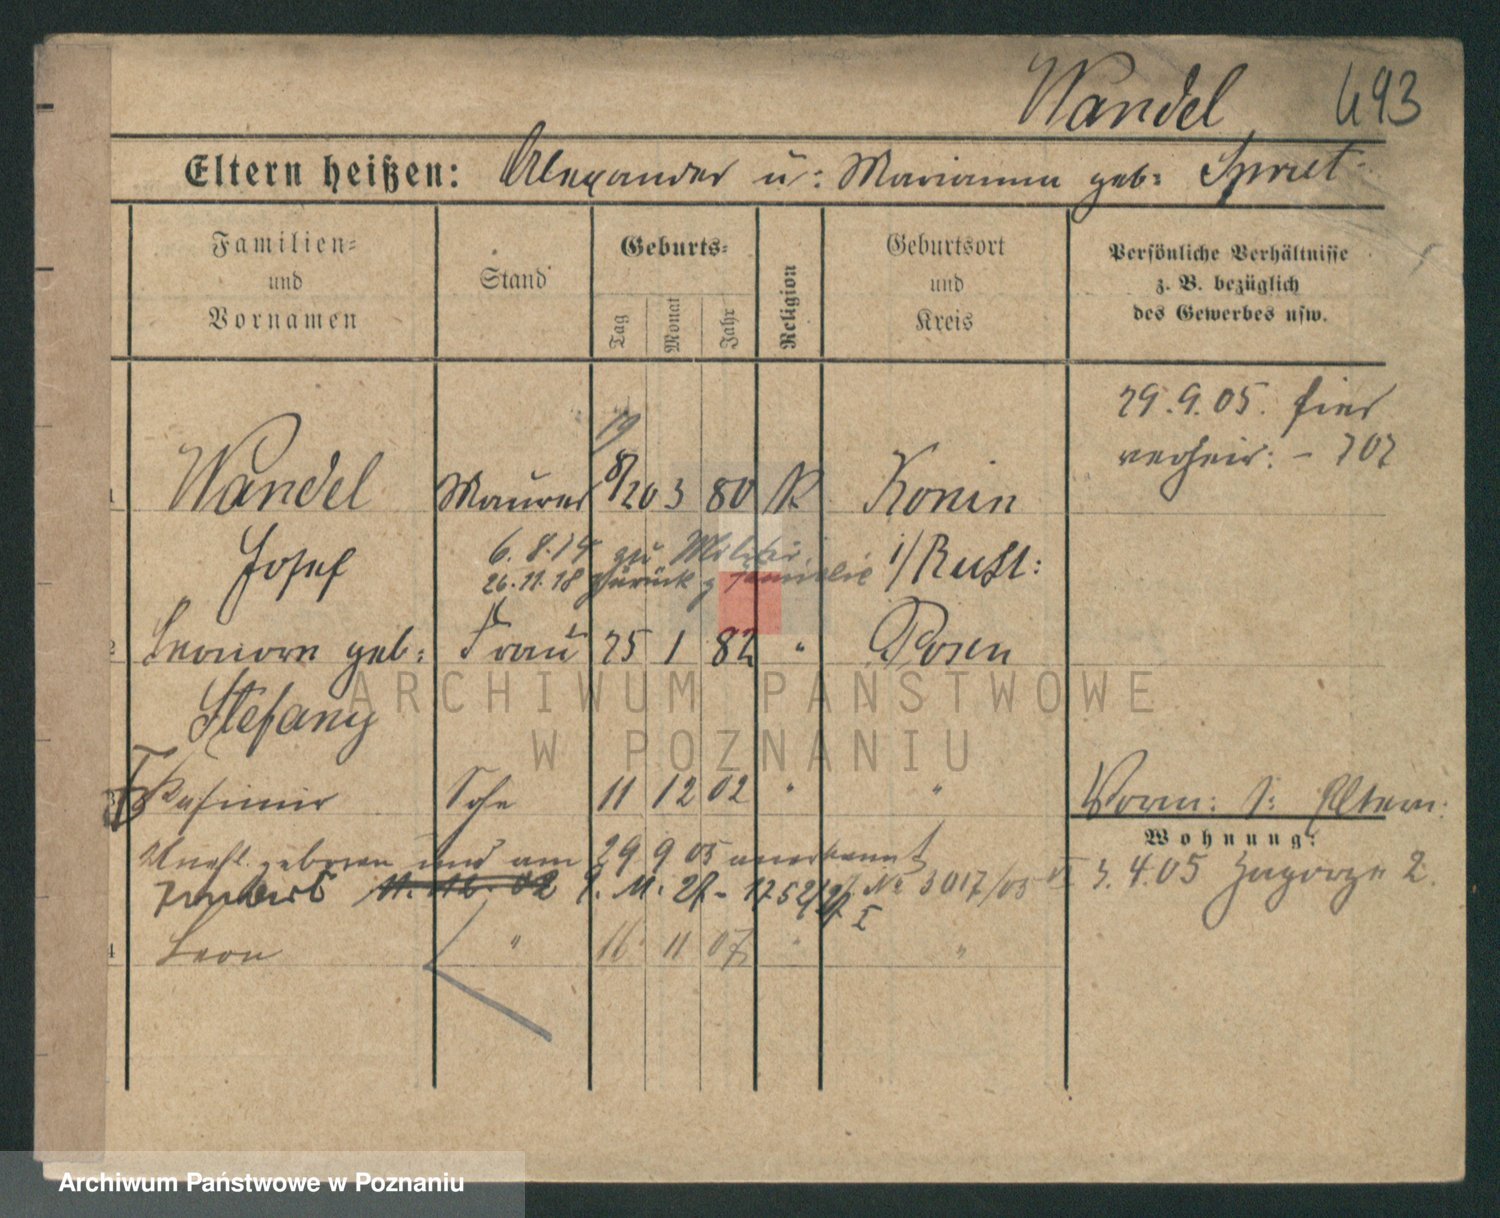 Wandel 493
Eltern heißen: Alexander u: Marianna geb:
Familien- und Vornamen
Stand
Geburts-
Tag
Monat
Jahr
Religion
Geburtsort und Kreis
Persönliche Verhältnisse z. B. bezüglich des Gewerbes usw.
29.9.05. hier
verheir: - 707
19
1 Wandel Maurer 8/20 3 80 K Konin
Josef i/Rußl:
6.8.14 zu Militär
26.11.18 zurück z Familie
2 Leonore geb: Frau 25 1 82 " Posen
Stefany
Kasimir Sohn 11 12 02 " "
Vorm: s: Eltern:
Wohnung:
Unehl. geboren und am 29 9 05 anerkannt
11.12.02 9.11.27 - № 3017/05
3.4.05 Zagorze 2.
4 Leon " 16 11 07 " "
ARCHIWUM PAŃSTWOWE
W POZNANIU
Archiwum Państwowe w Poznaniu